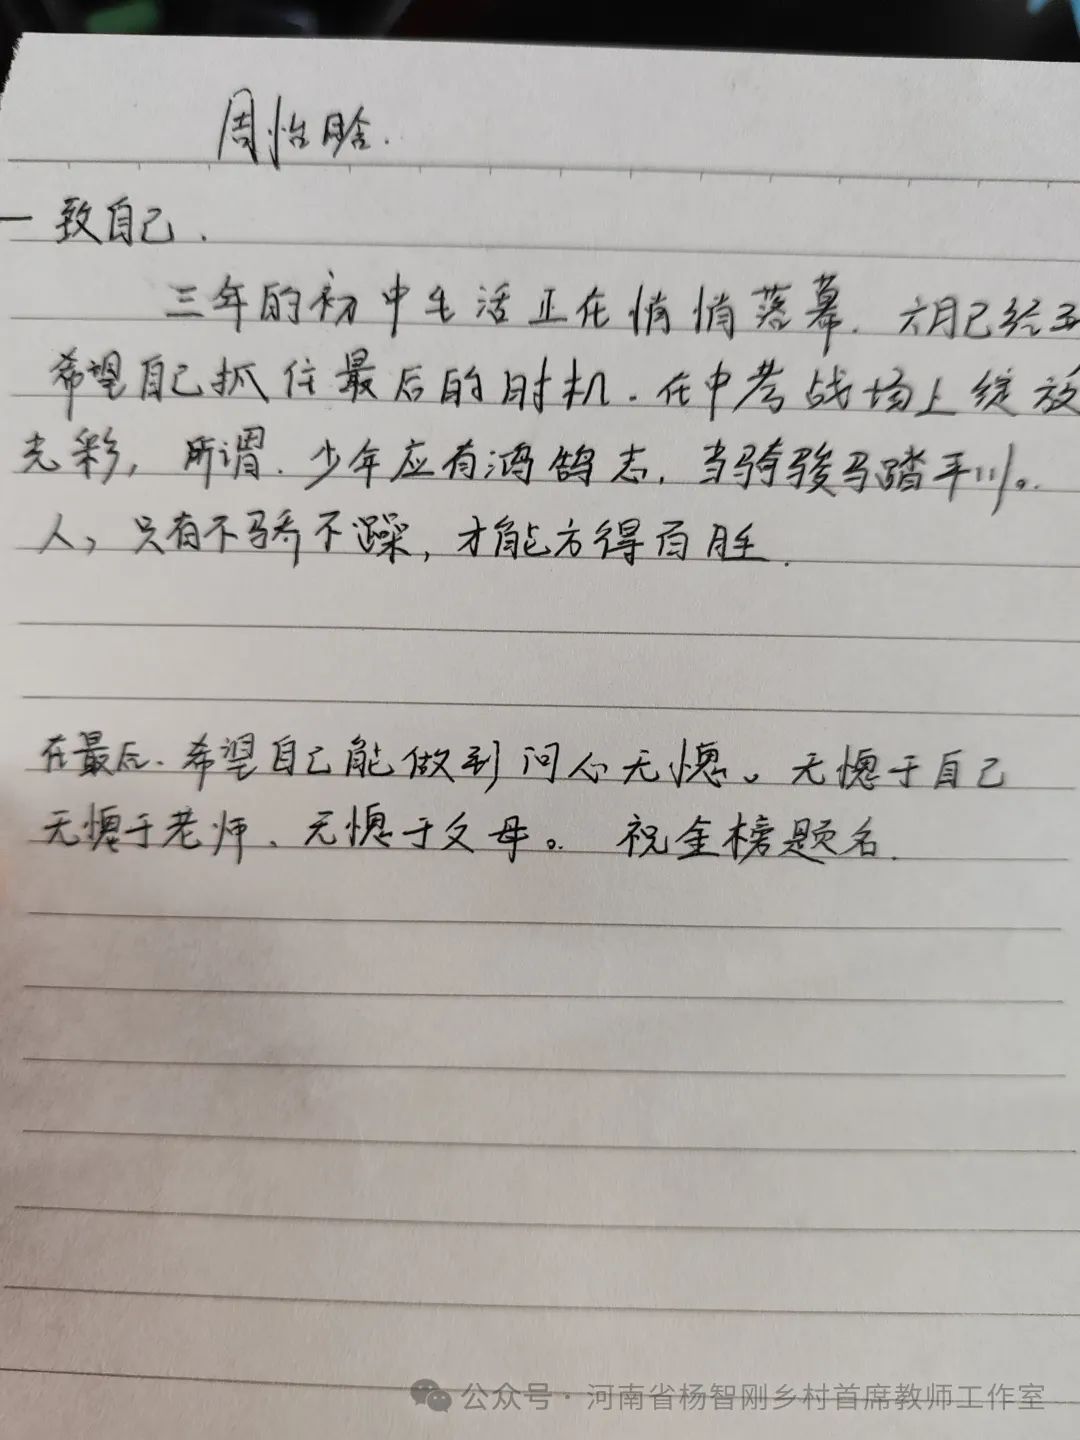 周怡晗.
一致自己.
三年的初中生活正在悄悄落幕. 六月已经
希望自己抓住最后的时机.在中考战场上绽放
光彩，所谓.少年应有鸿鹄志,当骑骏马踏平川。
人，只有不骄不躁,才能方得百胜.
在最后.希望自己能做到问心无愧。无愧于自己
无愧于老师、无愧于父母。 祝金榜题名.
公众号·河南省杨智刚乡村首席教师工作室